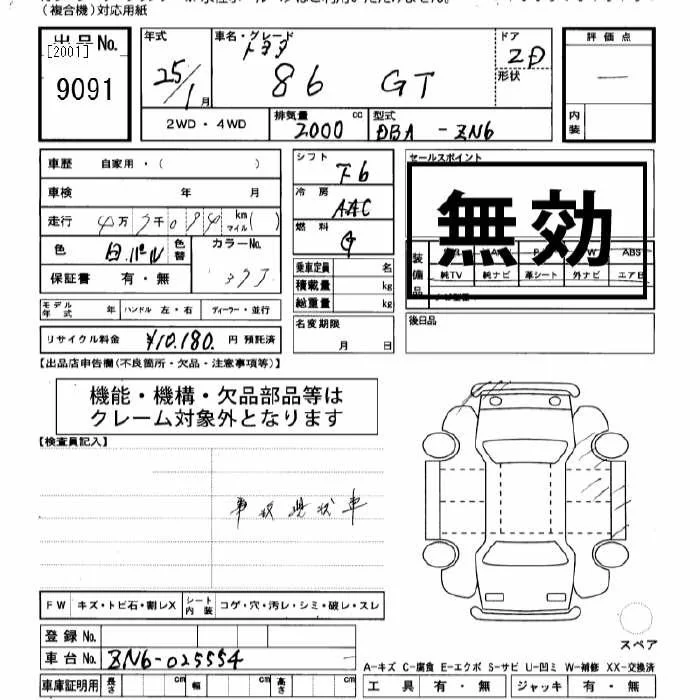 (複合機)対応用紙
出品No.
[2001]
9091
年式
25/1月
車名・グレード
トヨタ
86 GT
ドア
2D
形状
評価点
—
内装
2WD・4WD
排気量
2000 cc
型式
DBA-ZN6
車歴 自家用・( )
車検 年 月
走行 万 千 km マイル( )
色 白.パール
色替
カラーNo.
37J
保証書 有・無
モデル年式 年 ハンドル 左・右 ディーラー・並行
リサイクル料金 ¥10.180. 円 預託済
シフト F6
冷房 AAC
燃料 G
乗車定員 名
積載量 kg
総重量 kg
名変期限
月 日
セールスポイント
無効
装備品
ABS
純TV 純ナビ 革シート 外ナビ エアB
後日品
【出品店申告欄(不良箇所・欠品・注意事項等)】
機能・機構・欠品部品等は
クレーム対象外となります
【検査員記入】
事故現状車
FW キズ・トビ石・割レX シート内装 コゲ・穴・汚レ・シミ・破レ・スレ
登録No.
車台No. ZN6-025554
車庫証明用 長さ cm 幅 cm 高さ cm
スペア
A-キズ C-腐食 E-エクボ S-サビ U-凹ミ W-補修 XX-交換済
工具 有・無 ジャッキ 有・無